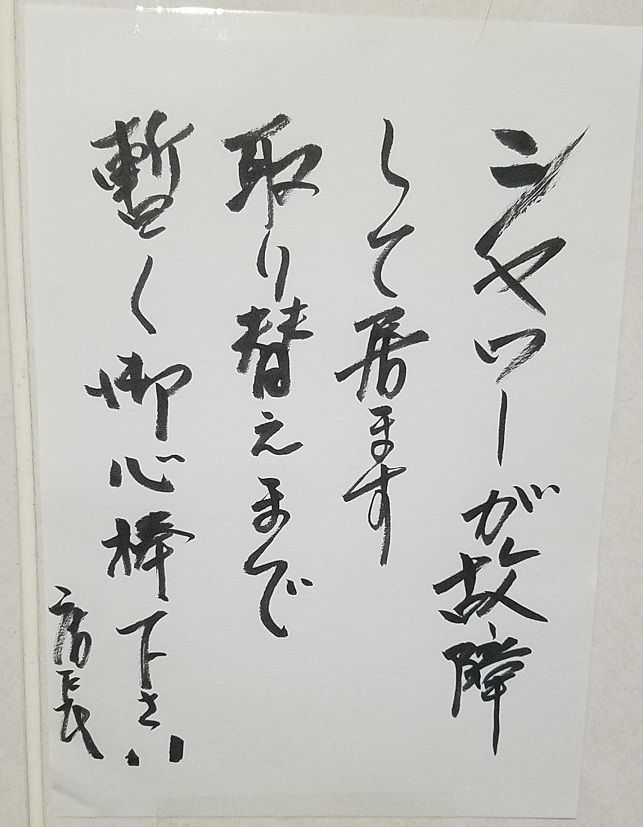 シャワーが故障
して居ます
取り替えまで
暫く御心棒下さい
店長